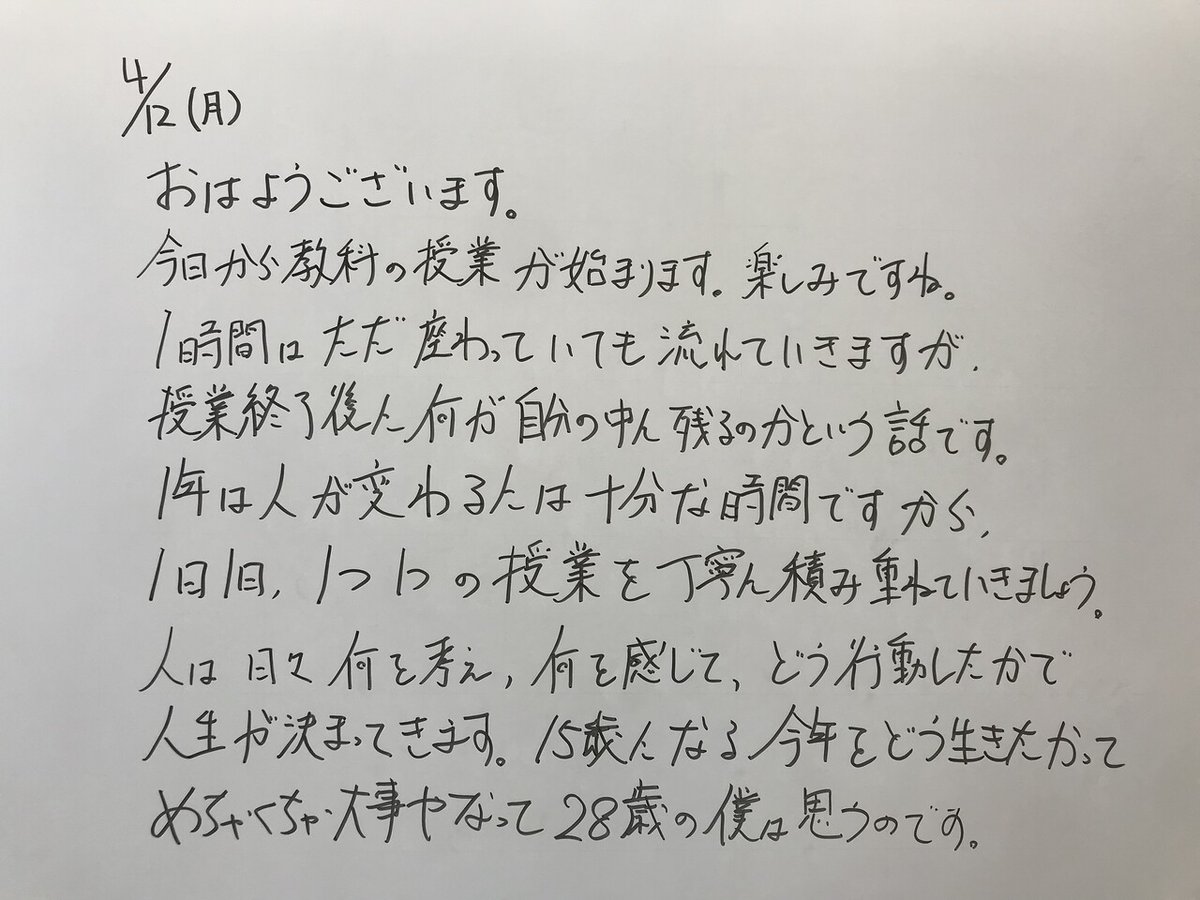 4/12(月)
おはようございます。
今日から教科の授業が始まります。楽しみですね。
1時間はただ座わっていても流れていきますが、
授業終了後に何が自分の中に残るのかという話です。
1年は人が変わるには十分な時間ですから、
1日1日、1つ1つの授業を丁寧に積み重ねていきましょう。
人は日々何を考え、何を感じて、どう行動したかで
人生が決まってきます。15歳になる今年をどう生きたかって
めちゃくちゃ大事やなって28歳の僕は思うのです。